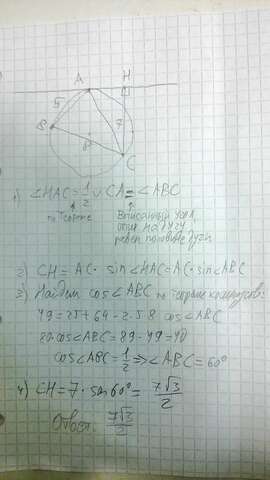 A H
5
B 7
8
C
1) ∠HAC = 1/2 ∪CA = ∠ABC
по теореме Вписанный угол,
опир на дугу
равен половине дуги
2) CH = AC · sin∠HAC = AC · sin∠ABC
3) Найдем cos∠ABC по теореме косинусов:
49 = 25 + 64 - 2·5·8 cos∠ABC
80 cos∠ABC = 89 - 49 = 40
cos∠ABC = 1/2 ⇒ ∠ABC = 60°
4) CH = 7 · sin60° = 7√3/2
Ответ: 7√3/2